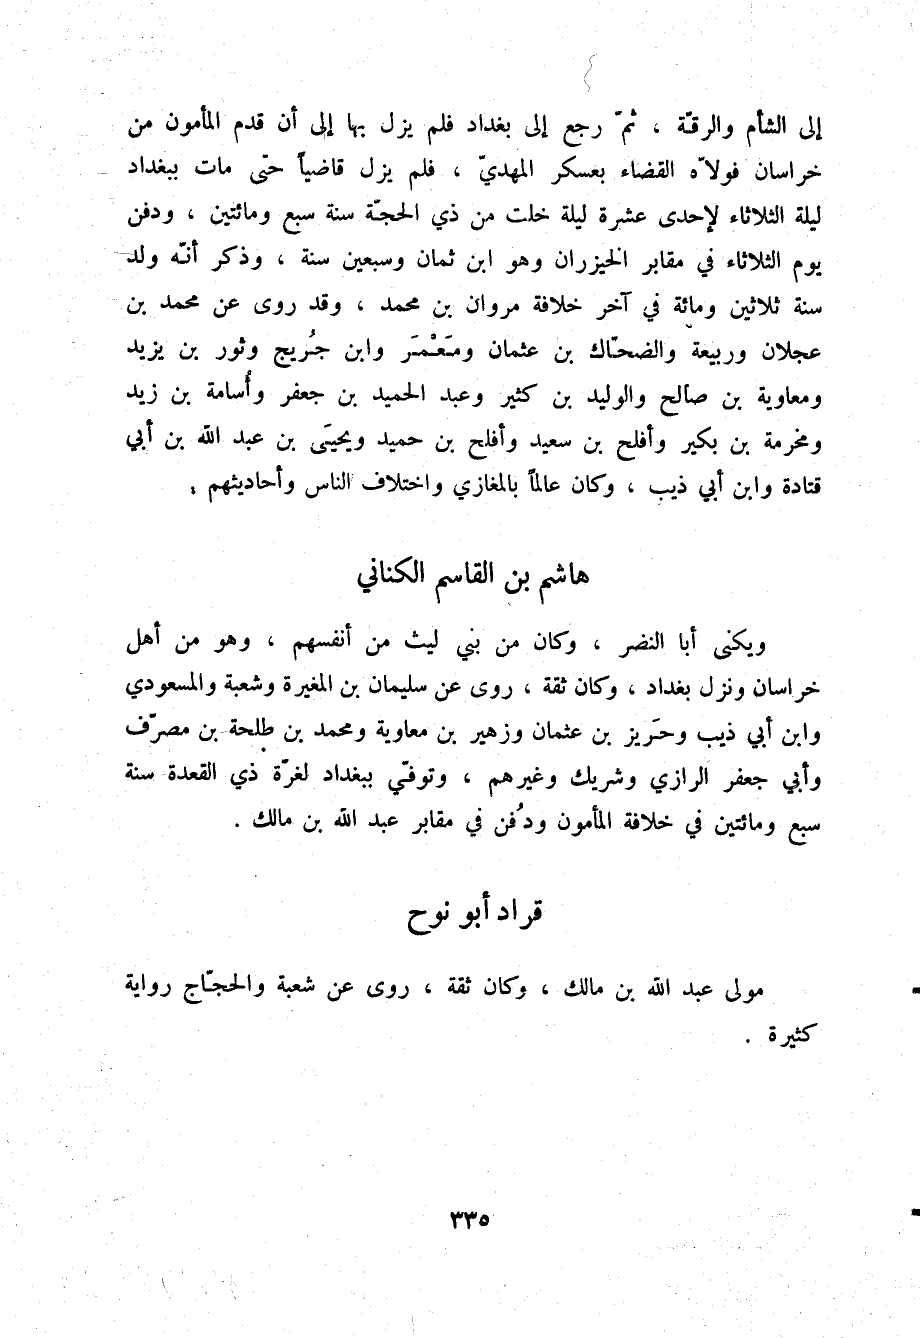 إلى الشأم والرقّة ، ثمّ رجع إلى بغداد فلم يزل بها إلى أن قدم المأمون من
خراسان فولاّه القضاء بعسكر المهديّ ، فلم يزل قاضياً حتّى مات ببغداد
ليلة الثلاثاء لإحدى عشرة ليلة خلت من ذي الحجّة سنة سبع ومائتين ، ودفن
يوم الثلاثاء في مقابر الخيزران وهو ابن ثمان وسبعين سنة ، وذكر أنّه ولد
سنة ثلاثين ومائة في آخر خلافة مروان بن محمد ، وقد روى عن محمد بن
عجلان وربيعة والضحّاك بن عثمان ومَعْمَر وابن جُريج وثور بن يزيد
ومعاوية بن صالح والوليد بن كثير وعبد الحميد بن جعفر وأُسامة بن زيد
ومخرمة بن بكير وأفلح بن سعيد وأفلح بن حميد ويحيَى بن عبد الله بن أبي
قتادة وابن أبي ذيب ، وكان عالماً بالمغازي واختلاف الناس وأحاديثهم .
هاشم بن القاسم الكناني
ويكنى أبا النضر ، وكان من بني ليث من أنفسهم ، وهو من أهل
خراسان ونزل بغداد ، وكان ثقة ، روى عن سليمان بن المغيرة وشعبة والمسعودي
وابن أبي ذيب وحَريز بن عثمان وزهير بن معاوية ومحمد بن طلحة بن مصرّف
وأبي جعفر الرازي وشريك وغيرهم ، وتوفّي ببغداد لغرّة ذي القعدة سنة
سبع ومائتين في خلافة المأمون ودُفن في مقابر عبد الله بن مالك .
قراد أبو نوح
مولى عبد الله بن مالك ، وكان ثقة ، روى عن شعبة والحجّاج رواية
كثيرة .
٣٣٥